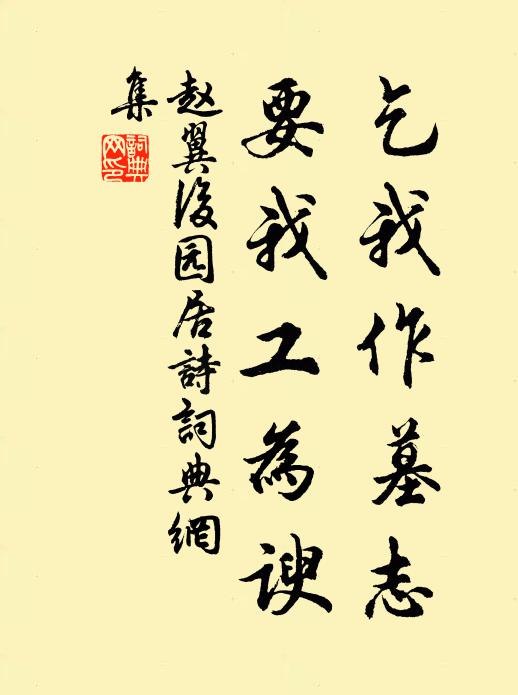 乞我作墓志
要我工為谀
赵翼後园居詩詞典網
集
詞典
网印